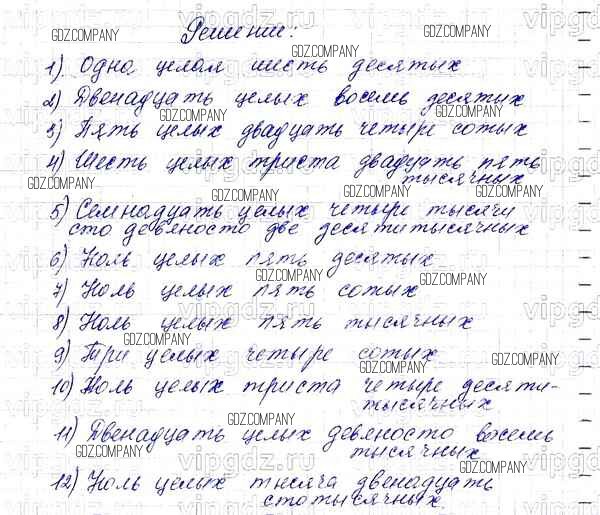 Решение:
1) Одна целая шесть десятых
2) Двенадцать целых восемь десятых
3) Пять целых двадцать четыре сотых
4) Шесть целых триста двадцать пять
тысячных
5) Семнадцать целых четыре тысячи
сто девяносто две десятитысячных
6) Ноль целых пять десятых
7) Ноль целых пять сотых
8) Ноль целых пять тысячных
9) Три целых четыре сотых
10) Ноль целых триста четыре десяти-
тысячных
11) Двенадцать целых девяносто восемь
тысячных
12) Ноль целых тысяча двенадцать
стотысячных.